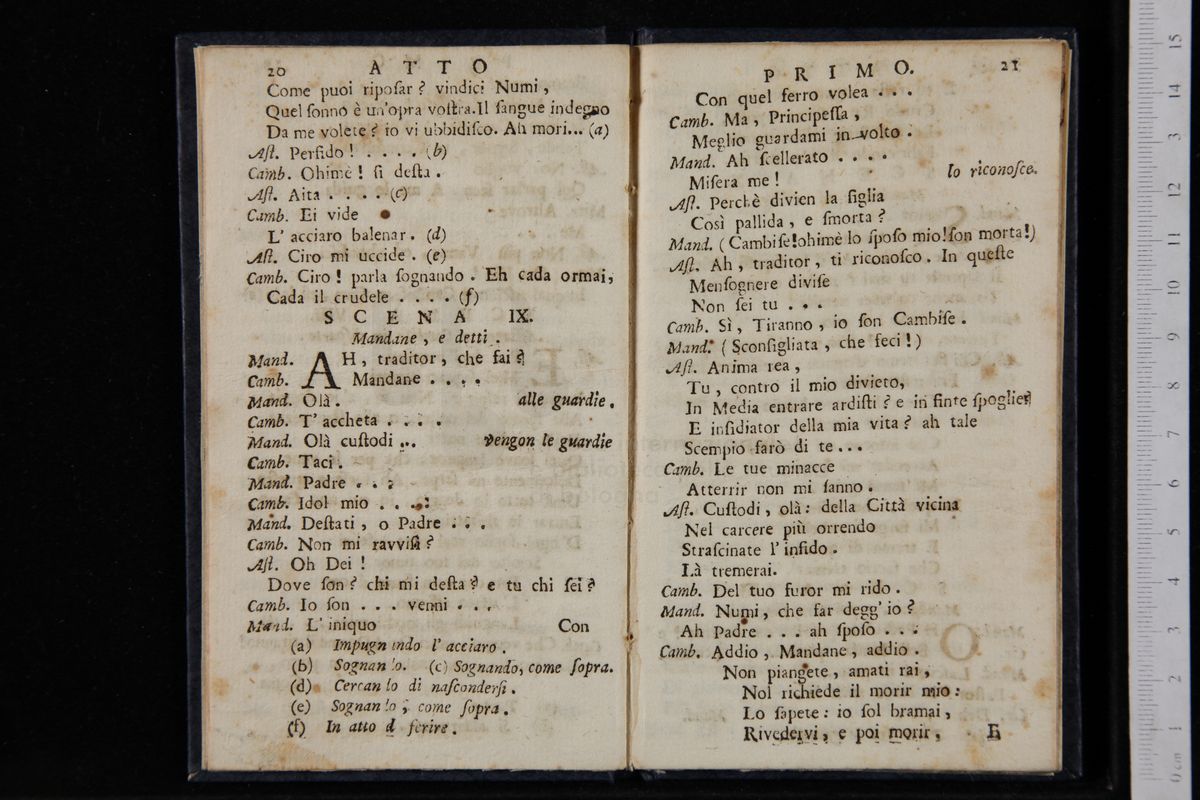 20 ATTO
Come puoi ripoſar? vindici Numi,
Quel ſonno è un'opra voſtra. Il ſangue indegno
Da me volete? io vi ubbidiſco. Ah mori... (a)
Aſt. Perfido! . . . . (b)
Camb. Ohimè! ſi deſta.
Aſt. Aita . . . . (c)
Camb. Ei vide
L'acciaro balenar. (d)
Aſt. Ciro mi uccide. (e)
Camb. Ciro! parla ſognando. Eh cada ormai,
Cada il crudele . . . . (f)
SCENA IX.
Mandane, e detti.
Mand. AH, traditor, che fai?
Camb. Mandane . . . .
Mand. Olà. alle guardie.
Camb. T'accheta . . . .
Mand. Olà cuſtodi ... vengon le guardie
Camb. Taci.
Mand. Padre . . .
Camb. Idol mio . . . .
Mand. Deſtati, o Padre . . .
Camb. Non mi ravviſi?
Aſt. Oh Dei!
Dove ſon? chi mi deſta? e tu chi ſei?
Camb. Io ſon . . . venni . . .
Mand. L'iniquo Con
(a) Impugnando l'acciaro.
(b) Sognando. (c) Sognando, come ſopra.
(d) Cercando di naſconderſi.
(e) Sognando, come ſopra.
(f) In atto d ferire.
PRIMO. 21
Con quel ferro volea . . .
Camb. Ma, Principeſſa,
Meglio guardami in volto.
Mand. Ah ſcellerato . . . .
Miſera me! lo riconoſce.
Aſt. Perchè divien la figlia
Così pallida, e ſmorta?
Mand. (Cambiſe! ohimè lo ſpoſo mio! ſon morta!)
Aſt. Ah, traditor, ti riconoſco. In queſte
Menſognere diviſe
Non ſei tu . . .
Camb. Sì, Tiranno, io ſon Cambiſe.
Mand. (Sconſigliata, che feci!)
Aſt. Anima rea,
Tu, contro il mio divieto,
In Media entrare ardiſti? e in finte ſpoglie?
E inſidiator della mia vita? ah tale
Scempio farò di te...
Camb. Le tue minacce
Atterrir non mi ſanno.
Aſt. Cuſtodi, olà: della Città vicina
Nel carcere più orrendo
Straſcinate l'infido.
Là tremerai.
Camb. Del tuo furor mi rido.
Mand. Numi, che far degg'io?
Ah Padre . . . ah ſpoſo . . .
Camb. Addio, Mandane, addio.
Non piangete, amati rai,
Nol richiede il morir mio:
Lo ſapete: io ſol bramai,
Rivedervi, e poi morir. E